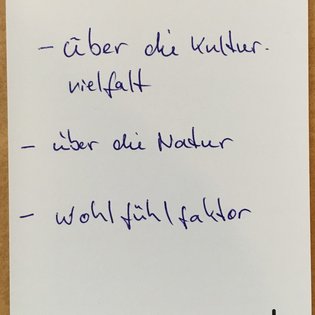 - über die Kultur-
vielfalt
- über die Natur
- Wohlfühlfaktor